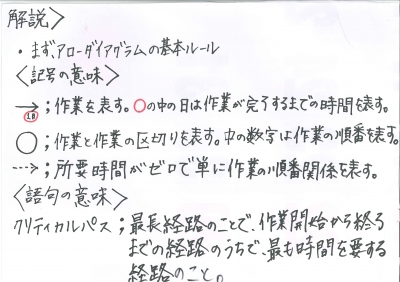 解説〉
・まず、アローダイアグラムの基本ルール
〈記号の意味〉
→；作業を表す。○の中の日は作業が完了するまでの時間を表す。
1日
○；作業と作業の区切りを表す。中の数字は作業の順番を表す。
⇢；所要時間がゼロで単に作業の順番関係を表す。
〈語句の意味〉
クリティカルパス；最長経路のことで、作業開始から終る
までの経路のうちで、最も時間を要する
経路のこと。